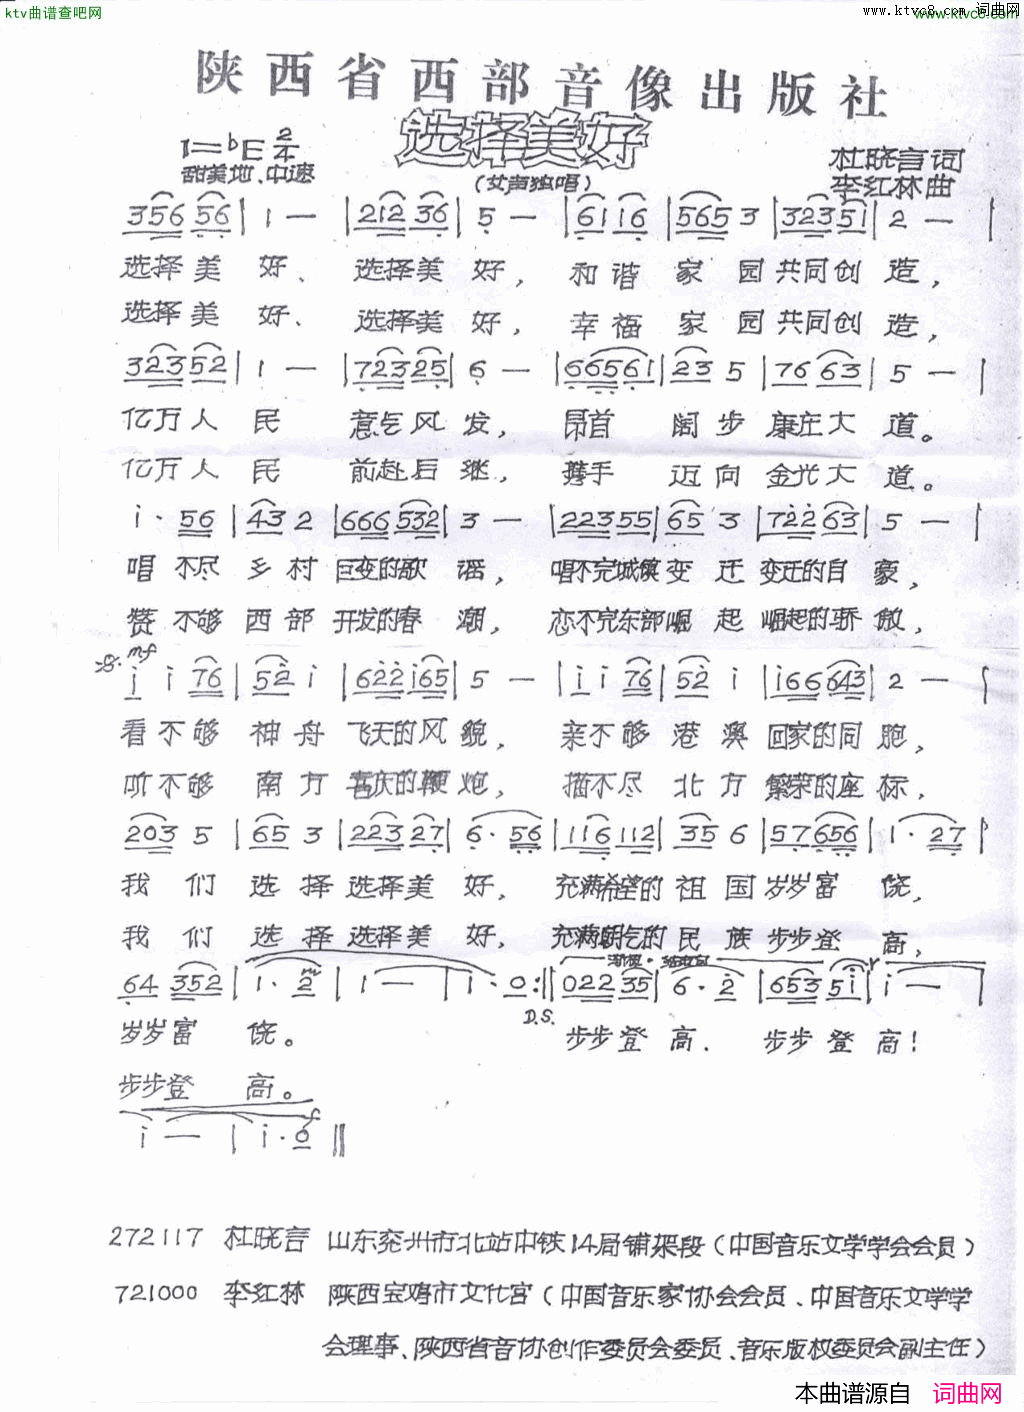 ktv曲谱查吧网
www.ktvc8.com 词曲网
www.ktvc8.com
陕西省西部音像出版社
选择美好
1=♭E 2/4
甜美地、中速
(女声独唱)
杜晓言词
李红林曲
356 56 | 1 — | 212 36 | 5 — | 61 16 | 565 3 | 323 51 | 2 — |
选择美 好、 选择美 好, 和谐 家 园 共同创 造,
选择美 好、 选择美 好, 幸福 家 园 共同创 造,
323 52 | 1 — | 723 25 | 6 — | 66561 | 23 5 | 76 63 | 5 — |
亿万人 民 意气风 发, 昂首 阔 步 康庄大 道。
亿万人 民 前赴后 继, 携手 迈 向 金光大 道。
i· 56 | 43 2 | 666 532 | 3 — | 223 55 | 65 3 | 722 63 | 5 — |
唱 不尽 乡 村 巨变的歌 谣, 唱不完城镇 变 迁 变迁的自 豪,
赞 不够 西 部 开发的春 潮, 恋不完东部崛 起 崛起的骄 傲,
mf
i i 76 | 52 i | 622 i65 | 5 — | i i 76 | 52 i | i66 643 | 2 — |
看 不 够 神 舟 飞天的风 貌, 亲 不 够 港 澳 回家的同 胞,
听 不 够 南 方 喜庆的鞭 炮, 描 不 尽 北 方 繁荣的座 标,
203 5 | 65 3 | 223 27 | 6· 56 | 116 112 | 35 6 | 57 656 | 1· 27 |
我 们 选 择 选择美 好, 充满希望的 祖 国 岁岁富 饶,
我 们 选 择 选择美 好, 充满朝气的 民 族 步步登 高,
64 352 | 1· 2 | 1 — | 1· 0 :|| 022 35 | 6· 2 | 653 5i | i — |
D.S.
岁岁富 饶。 步步登 高、 步步登 高!
步步登 高。
i — | i· 0 ||
272117 杜晓言 山东兖州市北站中铁14局铺架段(中国音乐文学学会会员)
721000 李红林 陕西宝鸡市文化宫(中国音乐家协会会员、中国音乐文学学
会理事、陕西省音协创作委员会委员、音乐版权委员会副主任)
本曲谱源自 词曲网